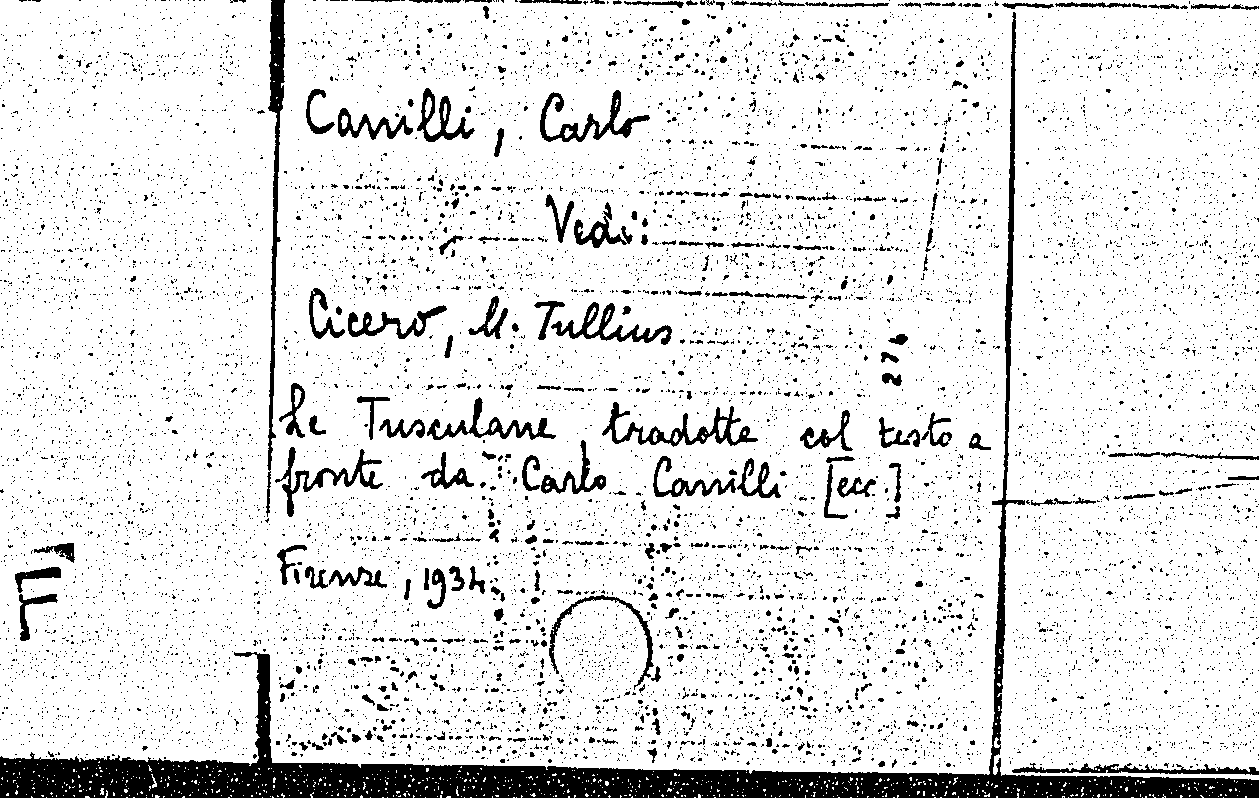 Camilli, Carlo
Vedi:
Cicero, M. Tullius
274
Le Tusculane, tradotte col testo a
fronte da Carlo Camilli [ecc.]
Firenze, 1934.
F